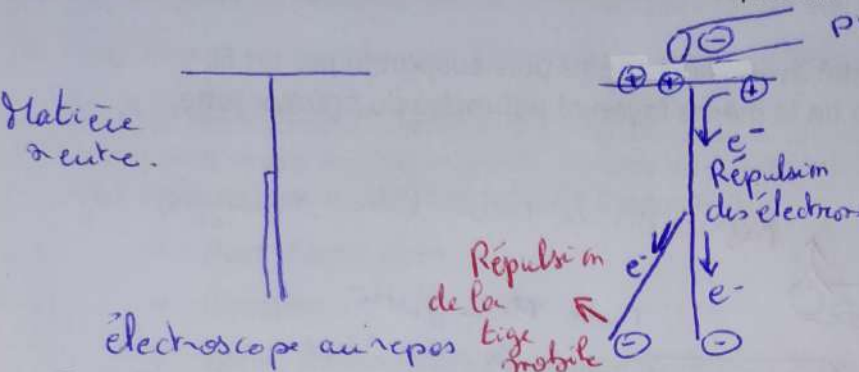 Matière
neutre.
électroscope au repos
P
⊖
⊕ ⊕ ⊕
e⁻
Répulsion
des électrons
e⁻
e⁻
Répulsion
de la
tige
mobile
⊖ ⊖